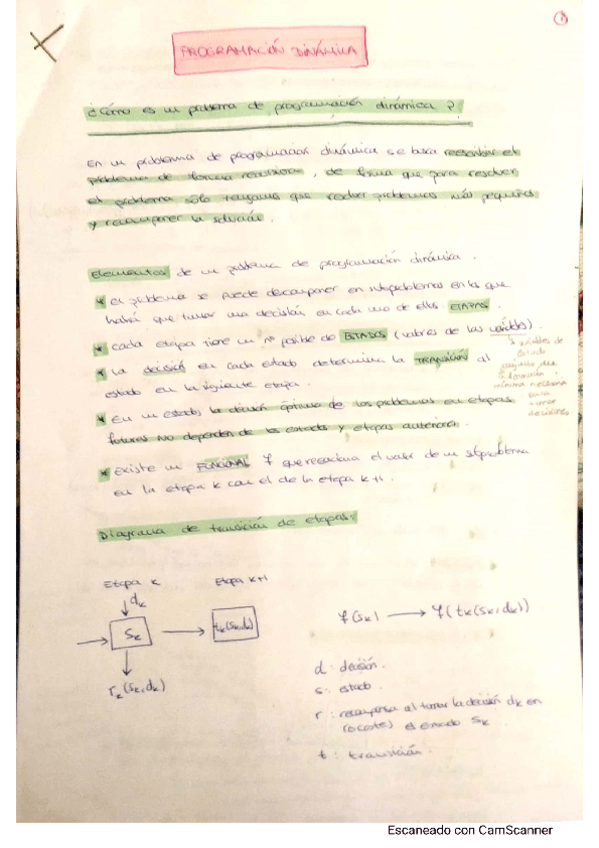 1
PROGRAMACIÓN DINÁMICA
¿Cómo es un problema de programación dinámica?
En un problema de programación dinámica se busca reescribir el
problema de forma recursiva, de forma que para resolver
el problema sólo tengamos que resolver problemas más pequeños
y recomponer la solución.
Elementos de un problema de programación dinámica.
* el problema se puede descomponer en subproblemas en los que
habrá que tomar una decisión en cada uno de ellos ETAPAS.
* cada etapa tiene un nº posible de ESTADOS (valores de las variables).
* La decisión en cada estado determina la TRANSICIÓN al
estado en la siguiente etapa.
variables de
estado
mínima necesaria
para
tomar
decisiones
* En un estado, la decisión óptima de los problemas en etapas
futuras NO dependen de los estados y etapas anteriores.
* existe un FUNCIONAL f que relaciona el valor de un subproblema
en la etapa k con el de la etapa k+1.
Diagrama de transición de etapas:
Etapa k Etapa k+1
dk
Sk → tk(Sk,dk)
rk(Sk,dk)
f(Sk) → f(tk(Sk,dk))
d: decisión.
s: estado.
r: recompensa al tomar la decisión dk en
(o coste) el estado Sk
t: transición.
Escaneado con CamScanner